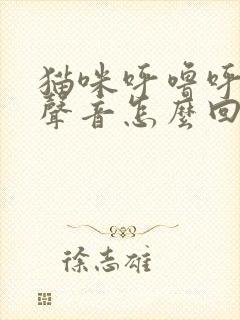 猫咪呼嚕呼
聲音怎麼回
徐志雄